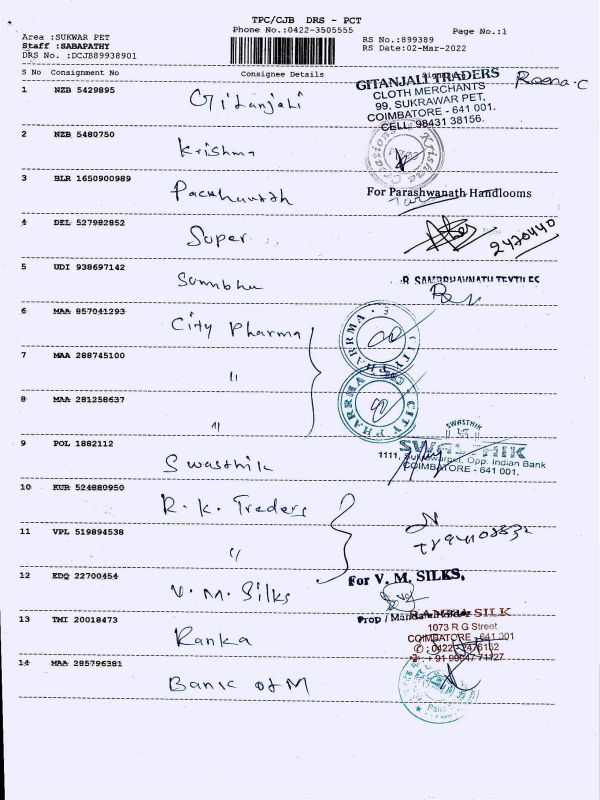 TPC/CJB DRS - PCT
Phone No.:0422-3505555
Page No.:1
Area :SUKWAR PET
Staff :SABAPATHY
DRS No. :DCJB89938901
RS No.:899389
RS Date:02-Mar-2022
S No Consignment No Consignee Details
1 NZB 5429895 Gitanjali
GITANJALI TRADERS
CLOTH MERCHANTS
99, SUKRAWAR PET,
COIMBATORE - 641 001.
CELL: 98431 38156.
Reena.C
2 NZB 5480750 Krishna
Krishna Creations
3 BLR 1650900989
For Parashwanath Handlooms
4 DEL 527982852 Super
2470440
5 UDI 938697142 Sambhu
SAMBHAVNATH TEXTILES
6 MAA 857041293 City Pharma
CITY PHARRMA
7 MAA 288745100 "
8 MAA 281258637 "
CITY PHARRMA
9 POL 1882112 Swasthik
SWASTHIK
SWASTHIK
1111, Sukrawarpet, Opp. Indian Bank
COIMBATORE - 641 001.
10 KUR 524880950 R. K. Traders
11 VPL 519894538 "
12 EDQ 22700454 V. M. Silks
For V. M. SILKS,
Prop / Mandate Holder
13 TMI 20018473 Ranka
RANKA SILK
1073 R G Street
COIMBATORE - 641 001
14 MAA 285796381 Bank of M